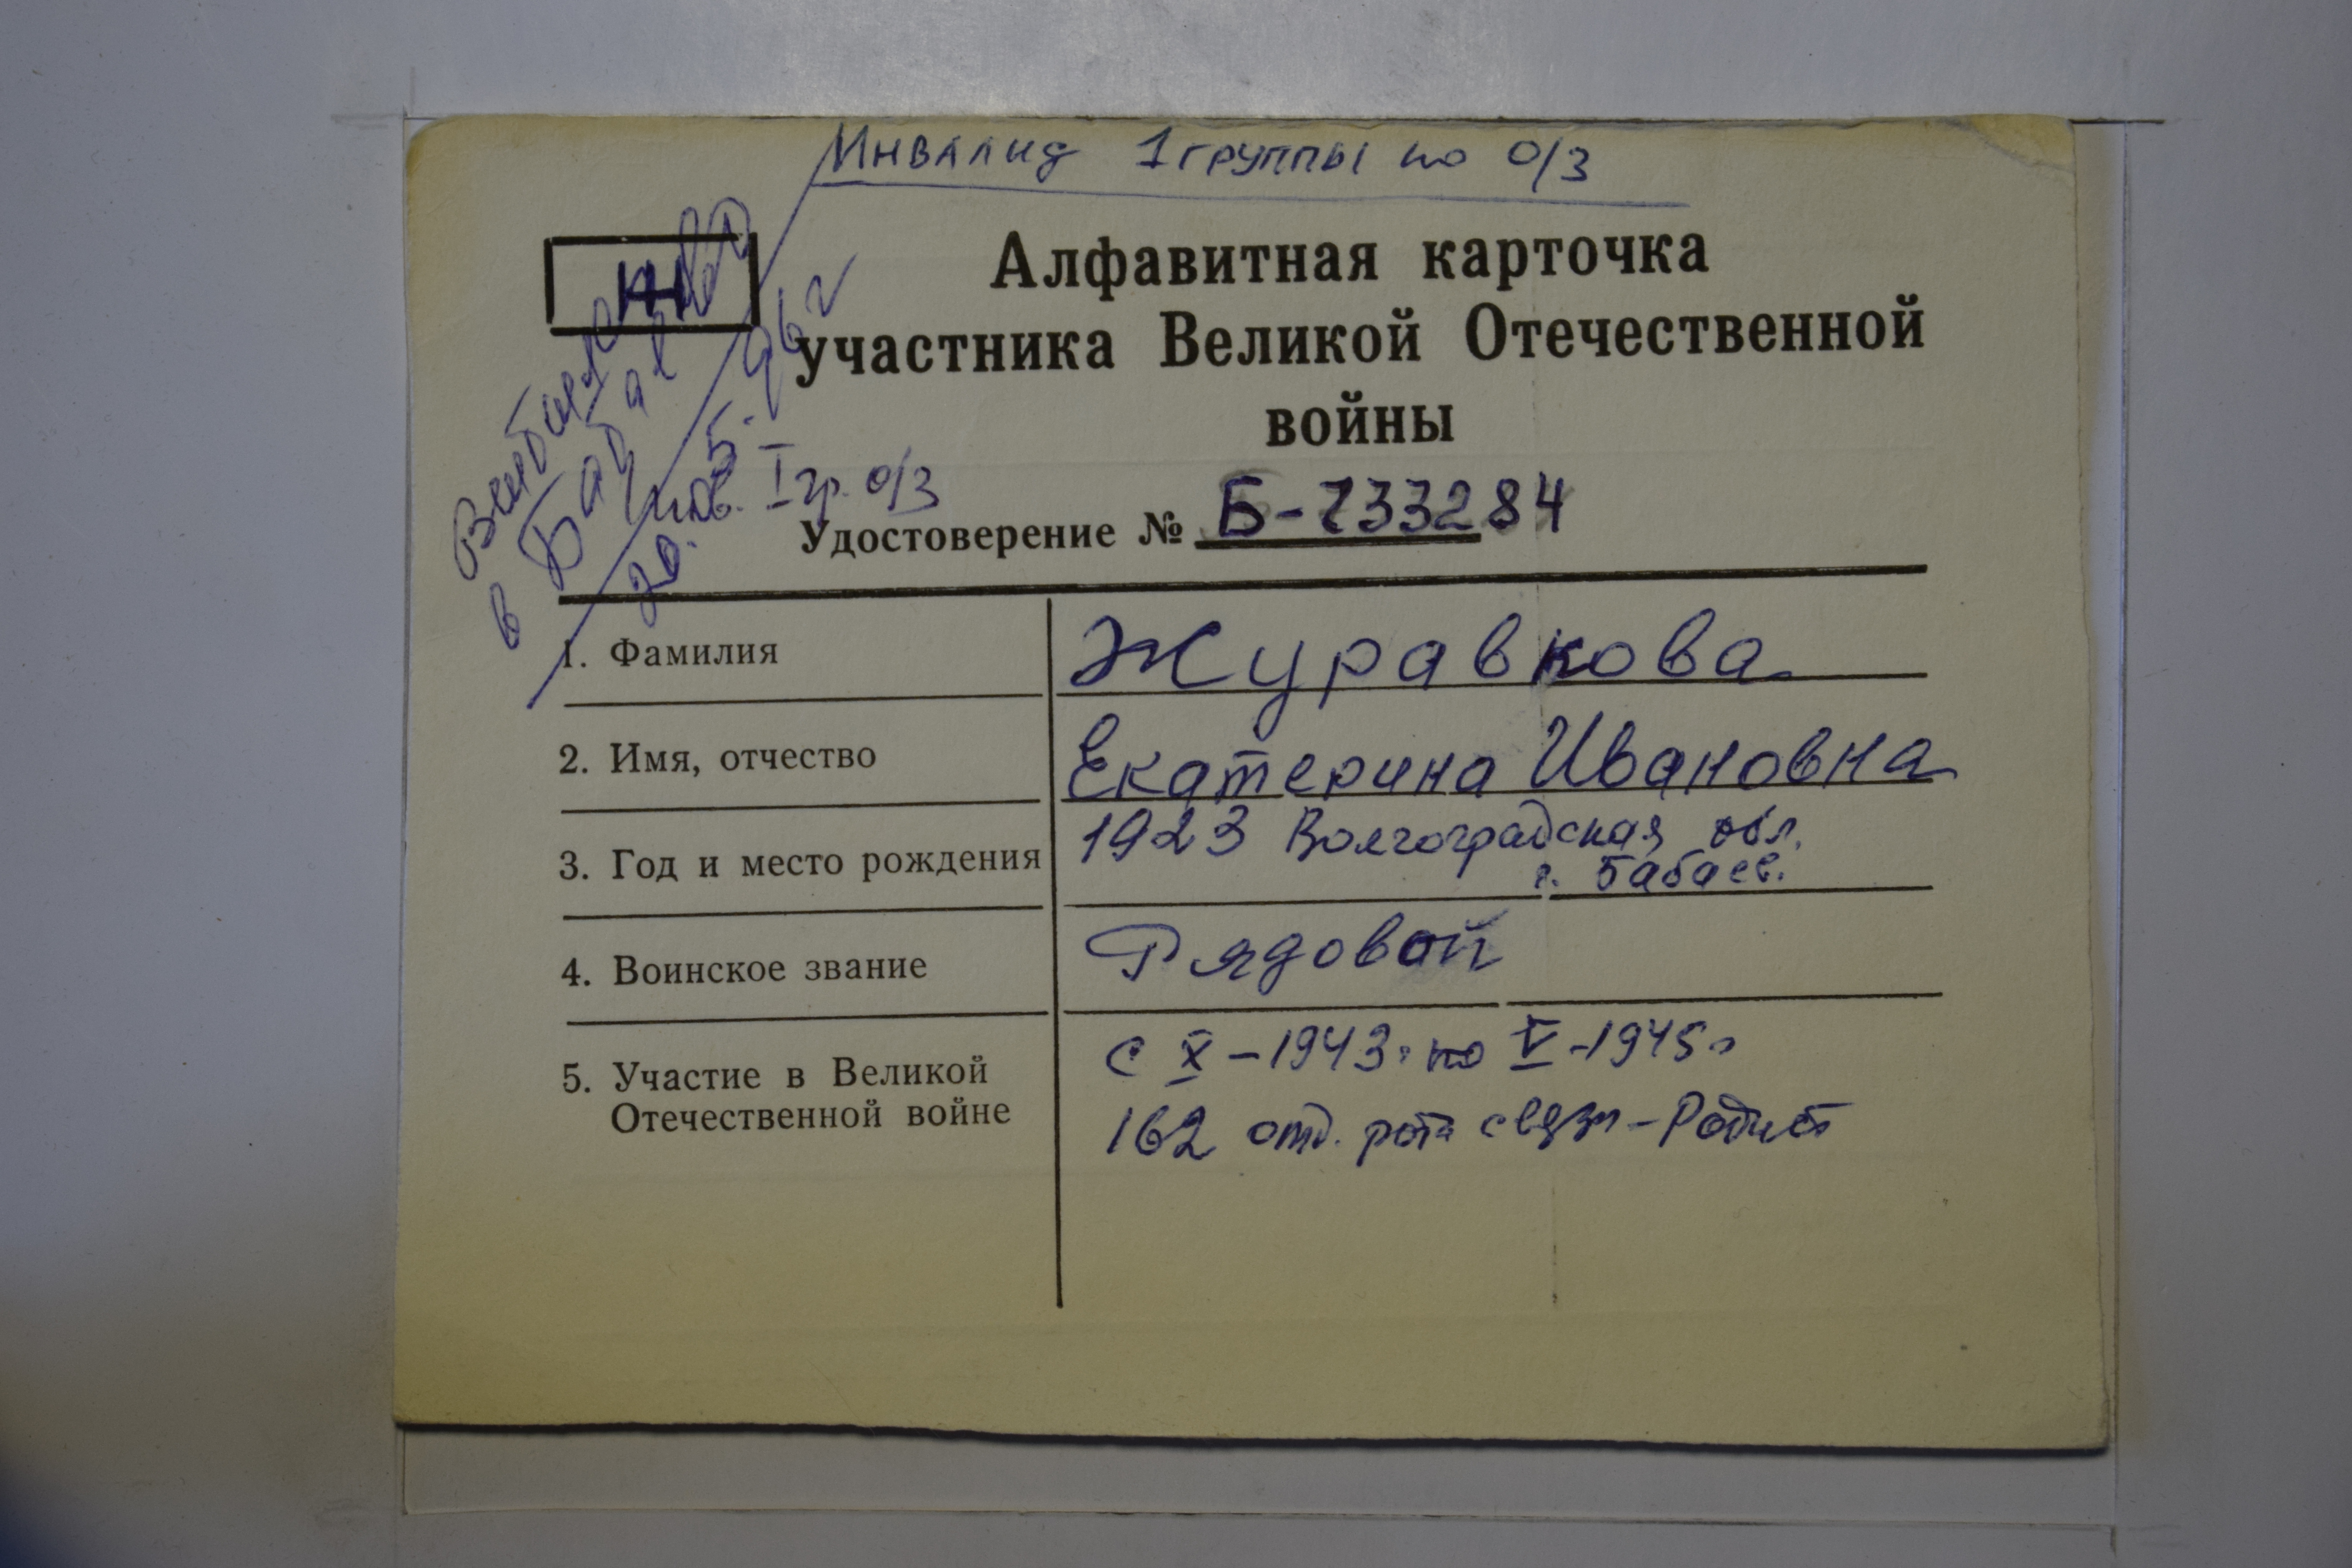 Инвалид 1 группы по о/з
Алфавитная карточка
участника Великой Отечественной
войны
в
20. 5. 96 г
инв. I гр. о/з
Удостоверение № Б-733284
1. Фамилия Журавкова
2. Имя, отчество Екатерина Ивановна
3. Год и место рождения 1923 Волгоградская обл.
г. Бабаев.
4. Воинское звание Рядовой
5. Участие в Великой
Отечественной войне
с X-1943г по V-1945г
162 отд. рота связи -